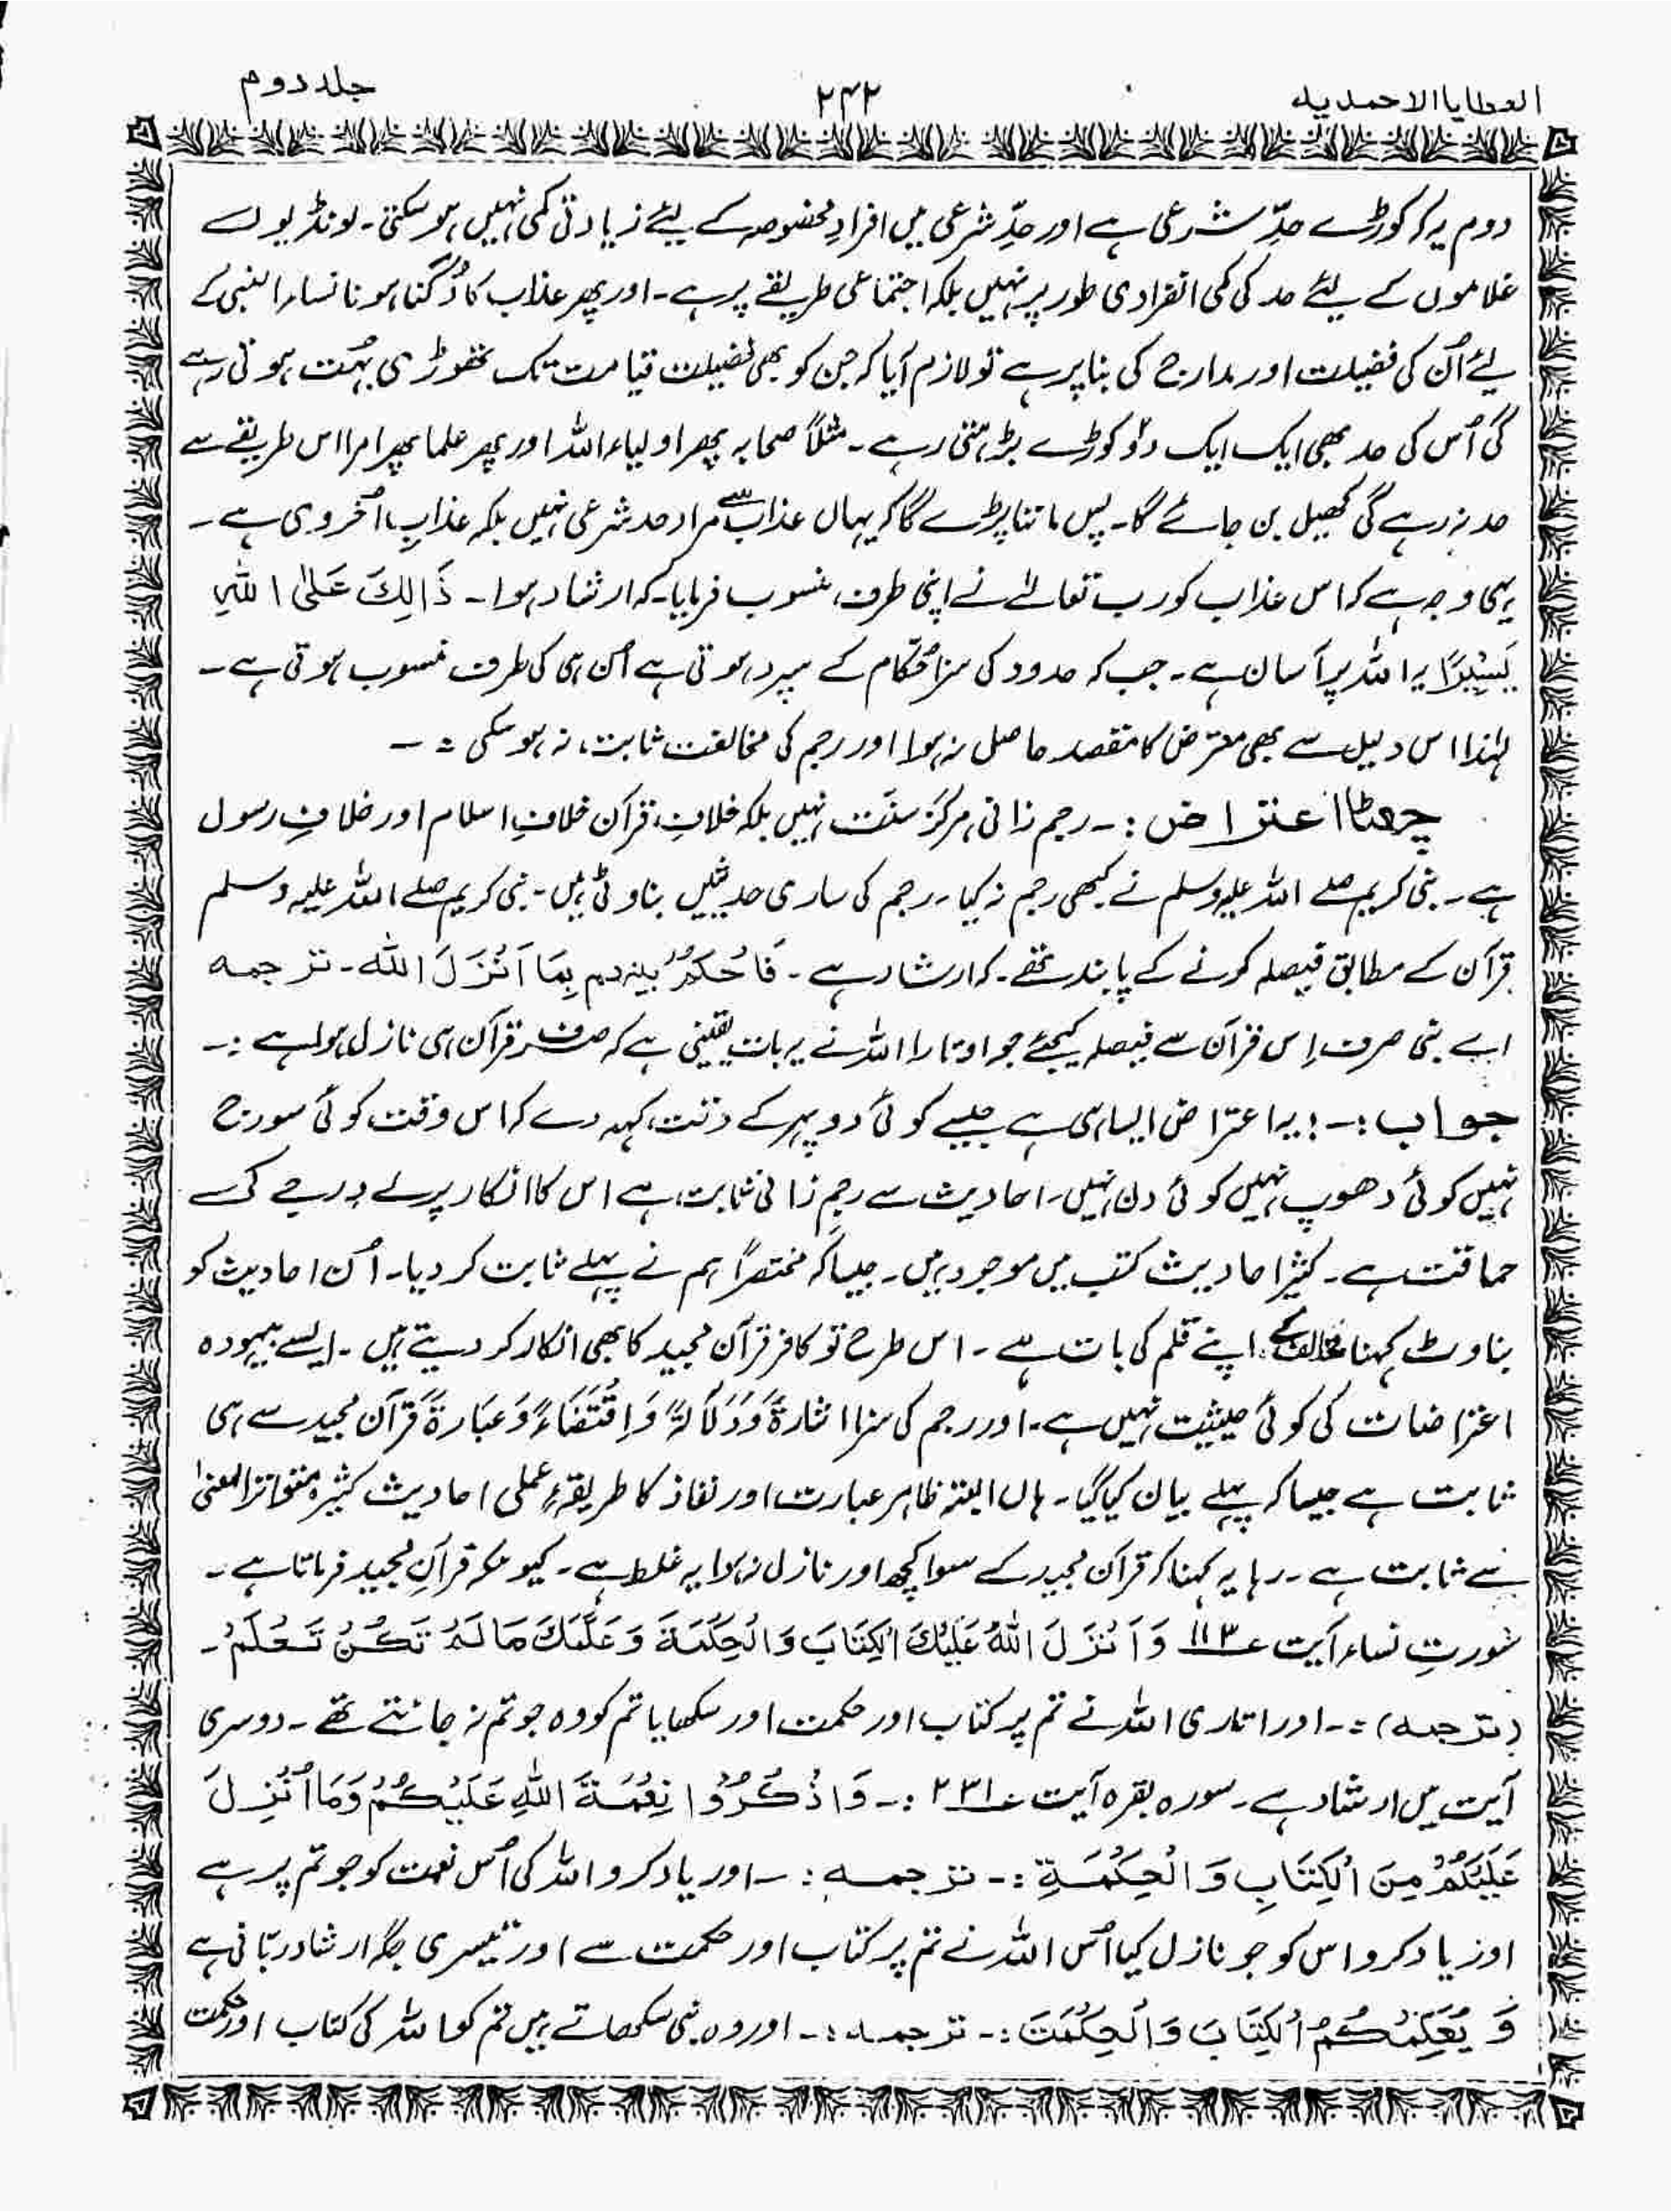 العطایا الاحمدیہ ۲۴۲ جلد دوم
دوم یہ کہ کوڑے حدِّ شرعی ہے اور حدِّ شرعی میں افرادِ مخصوصہ کے لیئے زیادتی کمی نہیں ہو سکتی۔ لونڈیوں
غلاموں کے لیئے حد کی کمی انفرادی طور پر نہیں بلکہ اجتماعی طریقے پر ہے۔ اور پھر عذاب کا دُگنا ہونا نساء النبی کے
لیے اُن کی فضیلت اور مدارج کی بنا پر ہے تو لازم آیا کہ جن کو بھی فضیلت قیامت تک تھوڑی بہُت ہوتی رہے
گی اُس کی حد بھی ایک ایک دوٗ کوڑے بڑہتی رہے۔ مثلاً صحابہ پھر اولیاء اللہ اور پھر علما پھر امرا اس طریقے سے
حد نہ رہے گی کھیل بن جائے گا۔ پس ماننا پڑے گا کہ یہاں عذاب سے مراد حد شرعی نہیں بلکہ عذابِ اُخروی ہے۔
یہی وجہ ہے کہ اس عذاب کو رب تعالےٰ نے اپنی طرف منسوب فرمایا۔ کہ ارشاد ہوا۔ ذَالِكَ عَلَى اللّٰهِ
يَسِيْرًا یہ اللہ پر آسان ہے۔ جب کہ حدود کی سزا حُکّام کے سپرد ہوتی ہے اُن ہی کی طرف منسوب ہوتی ہے۔
لہٰذا اس دلیل سے بھی معترض کا مقصد حاصل نہ ہوا اور رجم کی مخالفت ثابت نہ ہو سکی :۔
چھٹا اعتراض :۔ رجم زانی ہرگز سنّت نہیں بلکہ خلافِ قرآن خلافِ اسلام اور خلافِ رسول
ہے۔ نبی کریم صلے اللہ علیہ وسلم نے کبھی رجم نہ کیا۔ رجم کی ساری حدیثیں بناوٹی ہیں۔ نبی کریم صلے اللہ علیہ وسلم
قرآن کے مطابق فیصلہ کرنے کے پابند تھے۔ کہ ارشاد ہے۔ فَاحُكُمْ بينهم بِمَا اَنْزَلَ اللّٰه۔ ترجمہ
اے نبی صرف اِس قرآن سے فیصلہ کیجئے جو اوتارا اللہ نے یہ بات یقینی ہے کہ صرف قرآن ہی نازل ہوا ہے :۔
جواب :۔ ؛ یہ اعتراض ایسا ہی ہے جیسے کوئی دوپہر کے وقت کہہ دے کہ اس وقت کوئی سورج
نہیں کوئی دھوپ نہیں کوئی دن نہیں۔ احادیث سے رجمِ زانی ثابت ہے اس کا انکار پرلے درجے کی
حماقت ہے۔ کثیر احادیث کتب میں موجود ہیں۔ جیسا کہ مختصراً ہم نے پہلے ثابت کر دیا۔ اُن احادیث کو
بناوٹ کہنا مخالف کے اپنے قلم کی بات ہے۔ اس طرح تو کافر قرآن مجید کا بھی انکار کر دیتے ہیں۔ ایسے بیہودہ
اعتراضات کی کوئی حیثیت نہیں ہے۔ اور رجم کی سزا اشارةً وَدَلَالَةً وَاِقْتَضَاءً وَعِبَارةً قرآن مجید سے ہی
ثابت ہے جیسا کہ پہلے بیان کیا گیا۔ ہاں البتہ ظاہر عبارت اور نفاذ کا طریقہءِ عملی احادیث کثیرہ متواتر المعنیٰ
سے ثابت ہے۔ رہا یہ کہنا کہ قرآن مجید کے سوا کچھ اور نازل نہ ہوا یہ غلط ہے۔ کیونکہ قرآنِ مجید فرماتا ہے۔
سُورتِ نساء آیت ع۱۱۳ وَاَنْزَلَ اللّٰهُ عَلَيْكَ الْكِتَابَ وَالْحِكْمَةَ وَعَلَّمَكَ مَا لَمْ تَكُنْ تَعْلَمْ۔
(ترجمہ) :۔ اور اتاری اللہ نے تم پر کتاب اور حکمت اور سکھایا تم کو وہ جو تم نہ جانتے تھے۔ دوسری
آیت میں ارشاد ہے۔ سورہ بقرہ آیت ع۲۳۱ :۔ وَاذْكُرُوْا نِعْمَةَ اللّٰهِ عَلَيْكُمْ وَمَا اُنْزِلَ
عَلَيْكُمْ مِنَ الْكِتَابِ وَالْحِكْمَةِ :۔ ترجمہ :۔ اور یاد کرو اللہ کی اُس نعمت کو جو تم پر ہے
اور یاد کرو اس کو جو نازل کیا اُس اللہ نے تم پر کتاب اور حکمت سے اور تیسری جگہ ارشاد ربّانی ہے
وَ يُعَلِّمُكُمُ الْكِتَابَ وَالْحِكْمَتَ :۔ ترجمہ :۔ اور وہ نبی سکھاتے ہیں تم کو اللہ کی کتاب اور حکمت